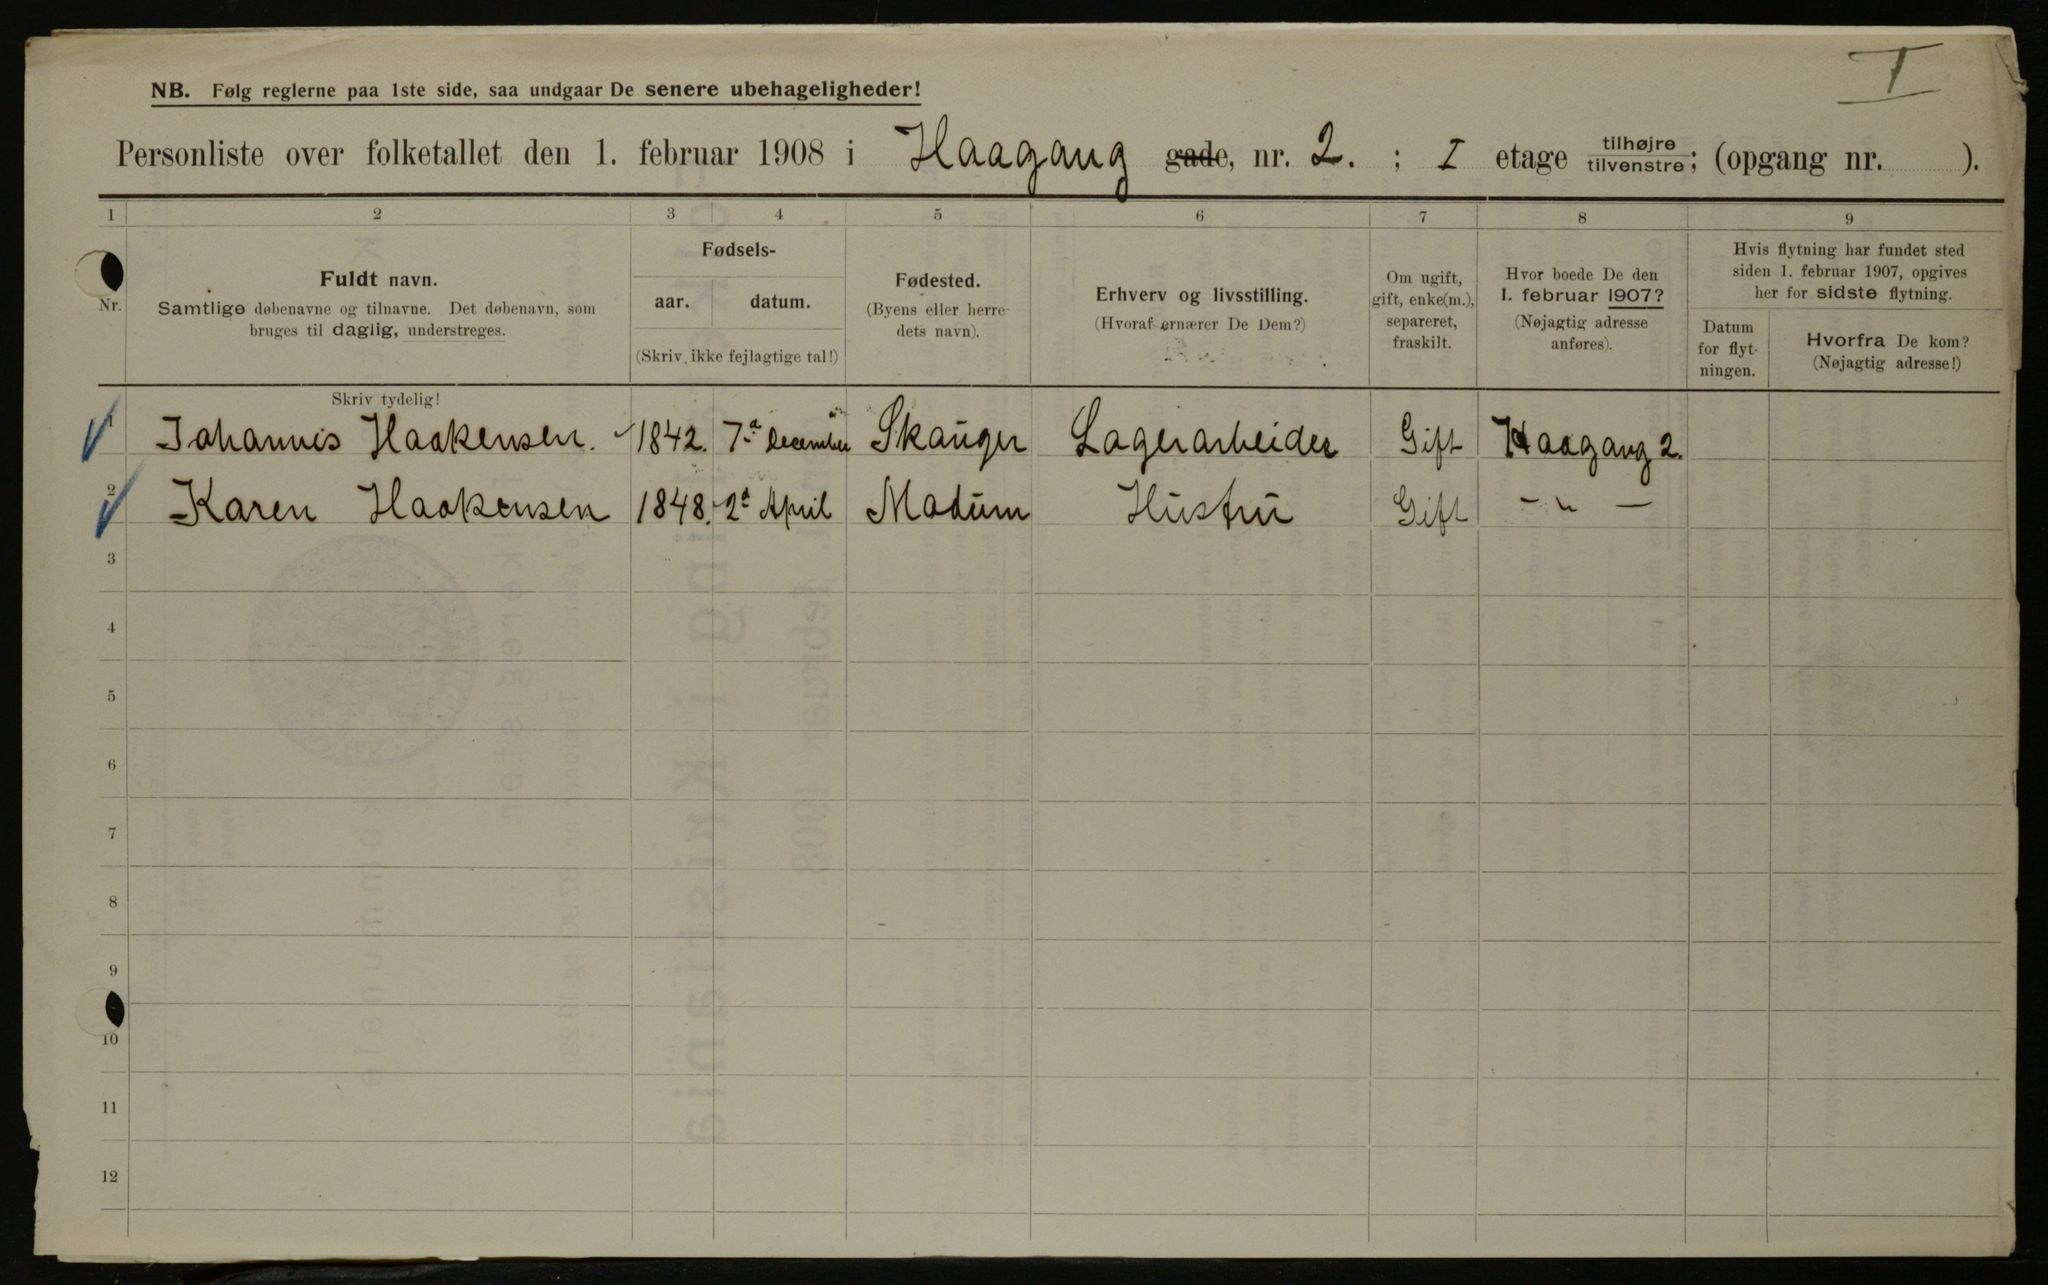 I
NB. Følg reglerne paa 1ste side, saa undgaar De senere ubehageligheder!
Personliste over folketallet den 1. februar 1908 i Haagang gade, nr. 2. ; I etage tilhøjre tilvenstre; (opgang nr. ).
1 2 3 4 5 6 7 8 9
Nr.
Fuldt navn.
Samtlige døbenavne og tilnavne. Det døbenavn, som
bruges til daglig, understreges.
Fødsels-
aar. datum.
(Skriv ikke fejlagtige tal!)
Fødested.
(Byens eller herre-
dets navn).
Erhverv og livsstilling.
(Hvoraf ernærer De Dem?)
Om ugift,
gift, enke(m.),
separeret,
fraskilt.
Hvor boede De den
1. februar 1907?
(Nøjagtig adresse
anføres).
Hvis flytning har fundet sted
siden 1. februar 1907, opgives
her for sidste flytning.
Datum
for flyt-
ningen.
Hvorfra De kom?
(Nøjagtig adresse!)
Skriv tydelig!
1 Johannis Haakensen. 1842. 7-d December Skauger Lagerarbeider Gift Haagang 2.
2 Karen Haakensen 1848. 2d April Modum Hustru Gift - " -
3
4
5
6
7
8
9
10
11
12